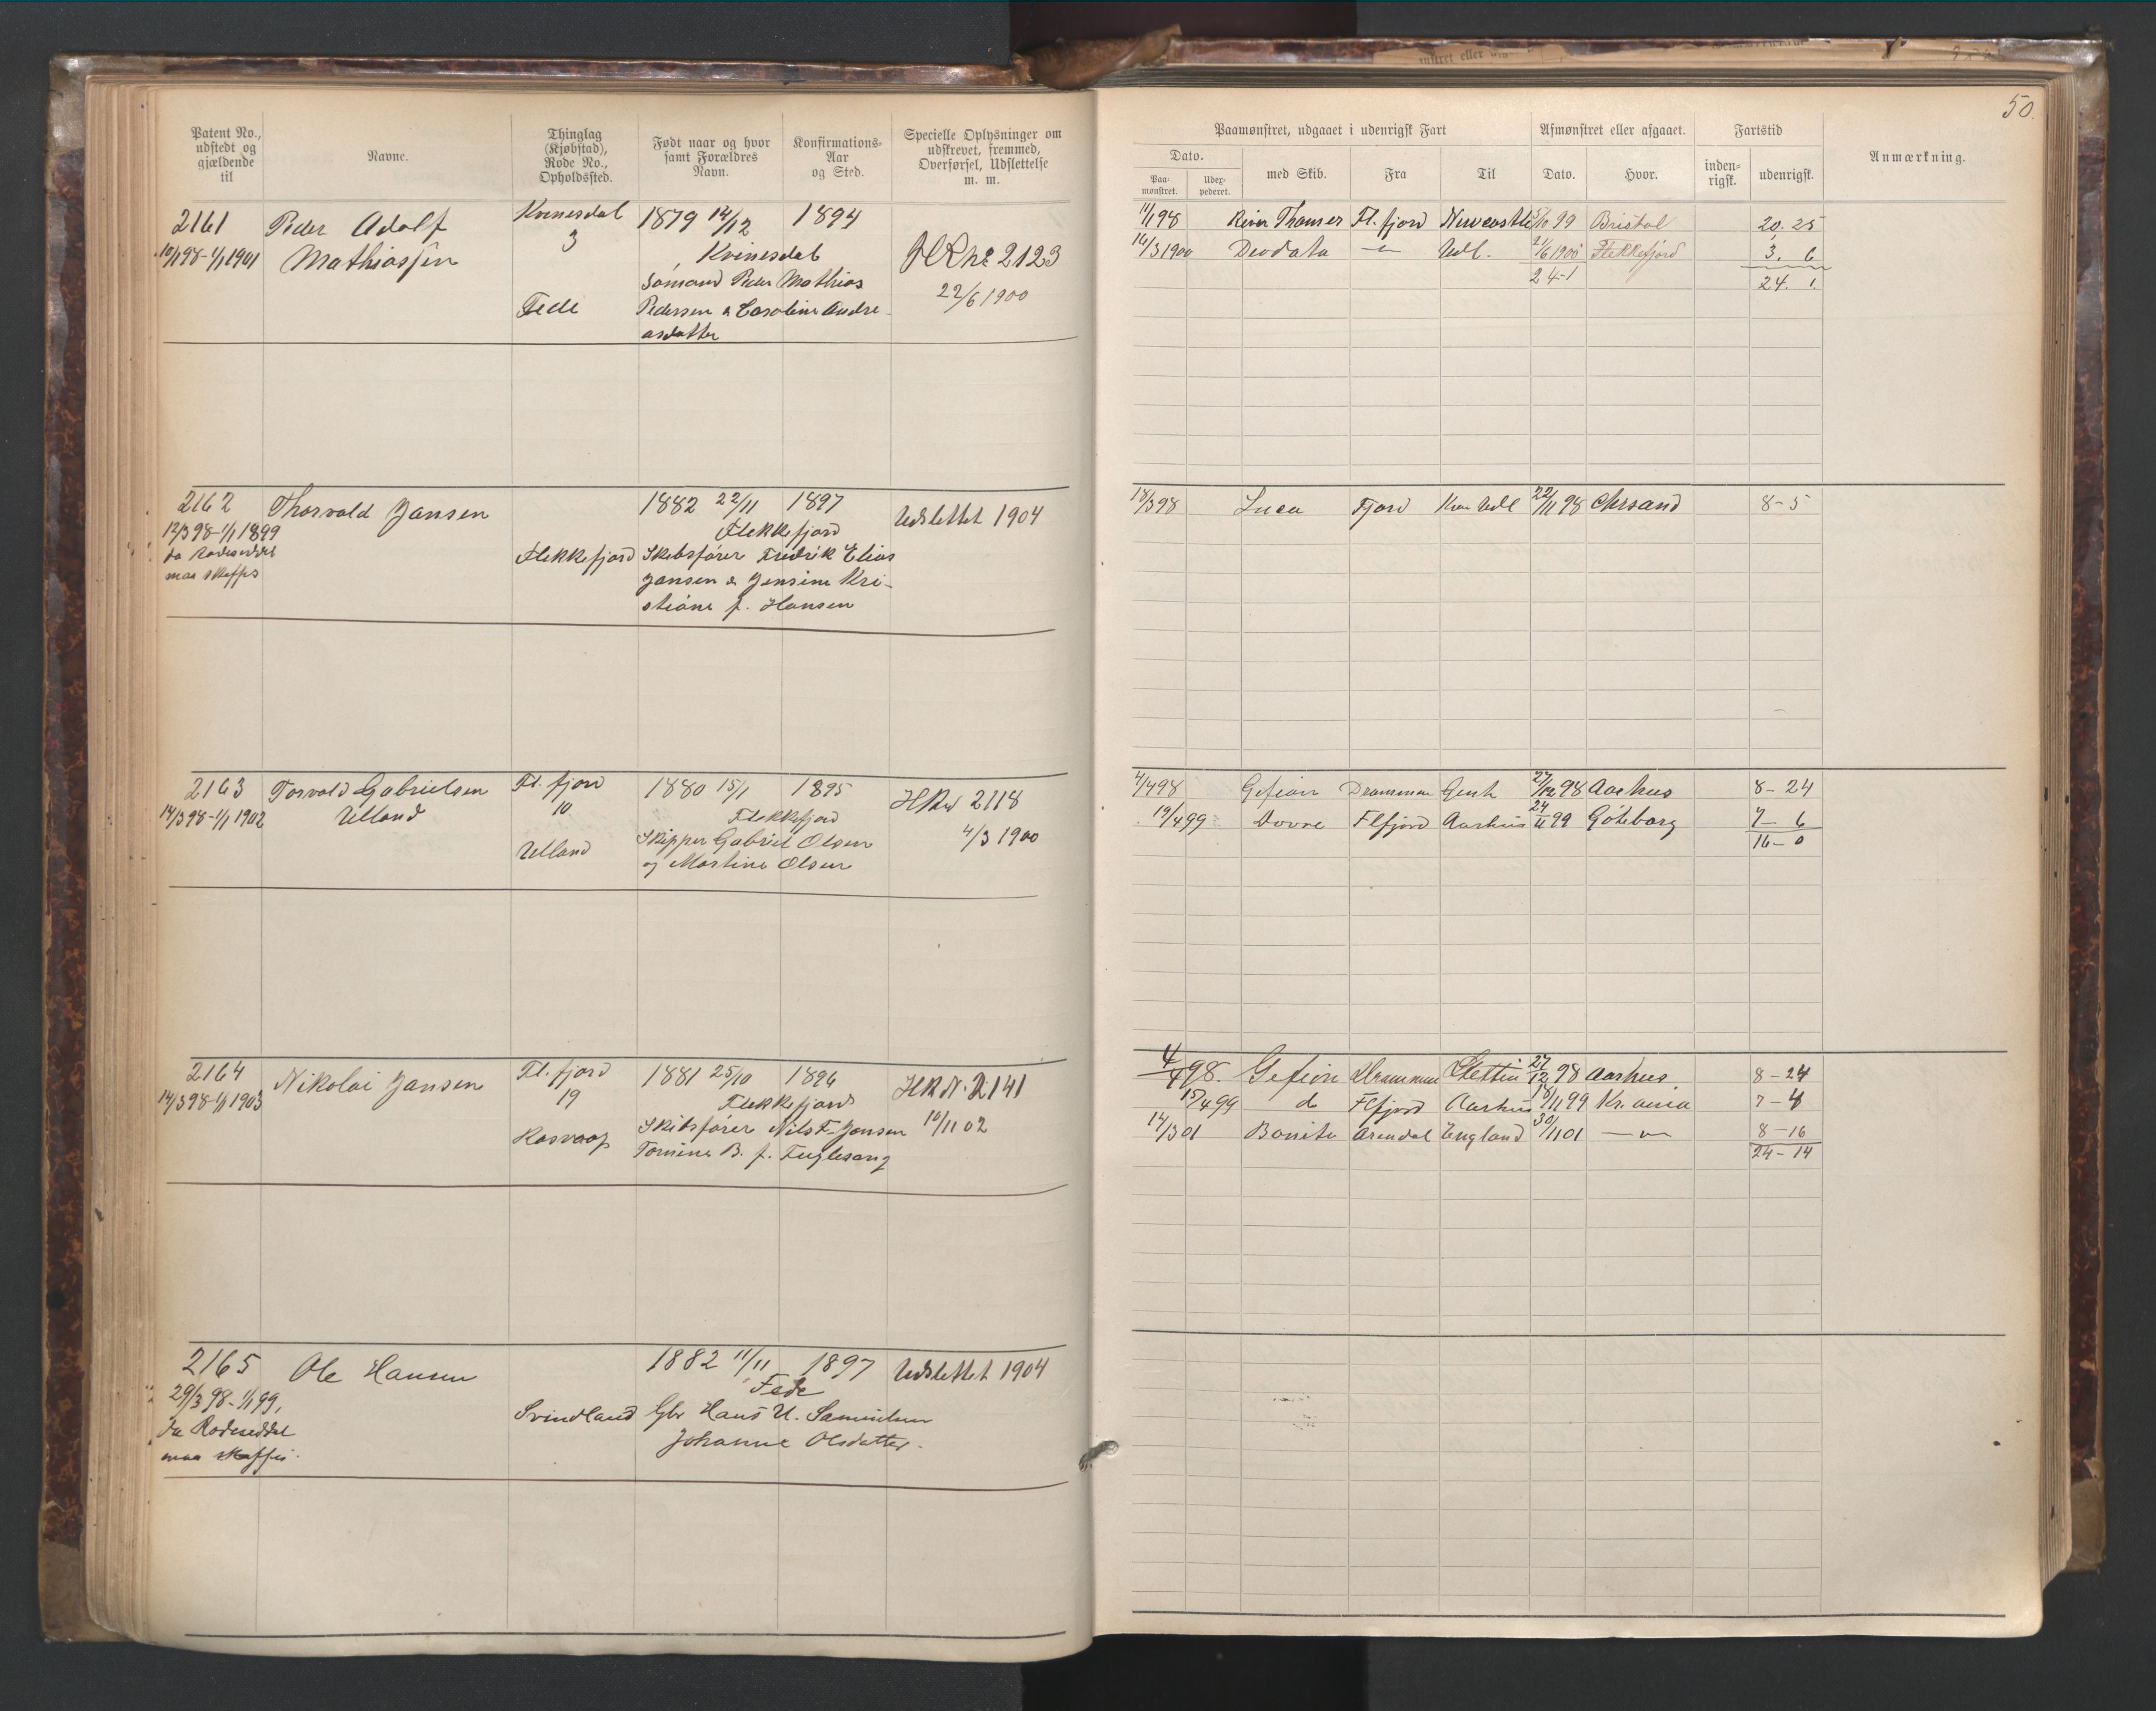 50.
Patent No., udstedt og gjældende til
Navne.
Thinglag (Kjøbstad), Rode No., Opholdssted.
Født naar og hvor samt Forældres Navn.
Konfirmations-Aar og Sted.
Specielle Oplysninger om udskrevet, fremmed, Overførsel, Udslettelse m. m.
Paamønstret, udgaaet i udenrigsk Fart
Afmønstret eller afgaaet.
Fartstid
Anmærkning.
Dato.
Paa-mønstret.
Udex-pederet.
med Skib.
Fra
Til
Dato.
Hvor.
inden-rigsk.
udenrigsk.
2161 Peder Adolf Kvinesdal 1879 14/12 1894
10/1 98-1/1 1901 Mathiassen 3 Kvinesdal HR no 2123
Sømand Peder Mathias 22/6 1900
Fede Pedersen & Caroline Andre-
asdatter
11/1 98 Fl.fjord Newcastle 5/10 99 Bristol 20. 25
16/3 1900 Deodata — Udl. 21/6 1900 Flekkefjord 3. 6
24-1 24. 1.
2162 Thorvald Jansen 1882 22/11 1897 Udslettet 1904
12/3 98-1/1 1899 Flekkefjord
da Rodeseddel Flekkefjord Skibsfører Fredrik Elias
maa skaffes Jansen & Jensine Kri-
stiane f. Hansen
18/3 98 Luca Fjord Udl 22/11 98 Chrsand 8-5
2163 Torvald Gabrielsen Fl.fjord 1880 15/1 1895 HR 2118
14/3 98-1/1 1902 Ulland 10 Flekkefjord
Ulland Skipper Gabriel Olsen 4/3 1900
og Martine Olsen
4/4 98 Gefion Drammen Gent 27/12 98 Aarhus 8-24
19/4 99 Dovre Flfjord Aarhus 24/11 99 Göteborg 7-6
16-0
2164 Nikolai Jansen Fl.fjord 1881 25/10 1896 HR N. 2141
14/3 98-1/1 1903 19 Flekkefjord
Rasvaag Skibsfører Nils F. Jansen 10/11 02
Tomine B. f. Fuglesang
4/4 98. Gefion Drammen Stettin 27/12 98 Aarhus. 8-24
15/4 99 do Flfjord Aarhus 18/11 99 Kr.ania 7-4
14/3 01 Bonita Arendal England 30/11 01 — 8-16
24-14
2165 Ole Hansen 1882 11/11 1897 Udslettet 1904
29/3 98-1/1 99, Fede
da Rodeseddel Svindland Gbr Hans U. Samuelsen
maa skaffes. Johanne Olsdatter.